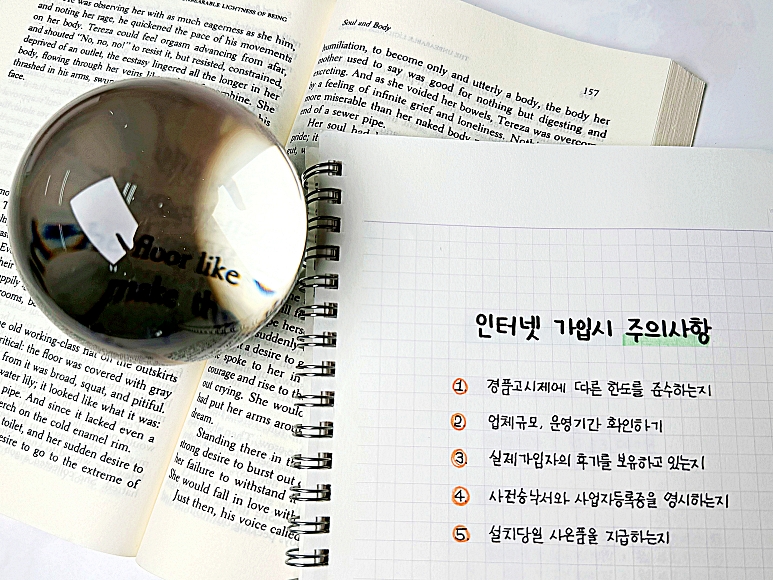 UNBEARABLE LIGHTNESS OF BEING
was observing her with as much eagerness as she him,
and noting her rage, he quickened the pace of his movements
on her body. Tereza could feel orgasm advancing from afar,
and shouted "No, no, no!" to resist it, but resisted, constrained,
deprived of an outlet, the ecstasy lingered all the longer in her
body, flowing through her veins like
thrashed in his arms,
face.
She
his
floor like
make th
old working-class flat on the outskirts
critical: the floor was covered with gray
from it was broad, squat, and pitiful.
water lily; it looked like what it was:
pipe. And since it lacked even a
perch on the cold enamel rim.
toilet, and her sudden desire to
desire to go to the extreme of
Soul and Body
157
humiliation, to become only and utterly a body, the body her
mother used to say was good for nothing but digesting and
excreting. And as she voided her bowels, Tereza was overcome
by a feeling of infinite grief and loneliness.
more miserable than her naked body
end of a sewer pipe.
Her soul had
hers.
suddenly
a desire to
spoke to her in
courage and rise to th
out crying. She would
had put her arms around
dream.
Standing there in th
strong desire to burst out
her failure to withstand
She would fall in love with
Just then, his voice called
인터넷 가입시 주의사항
① 경품고시제에 따른 한도를 준수하는지
② 업체규모, 운영기간 확인하기
③ 실제가입자의 후기를 보유하고 있는지
④ 사전승낙서와 사업자등록증을 명시하는지
⑤ 설치당일 사은품을 지급하는지